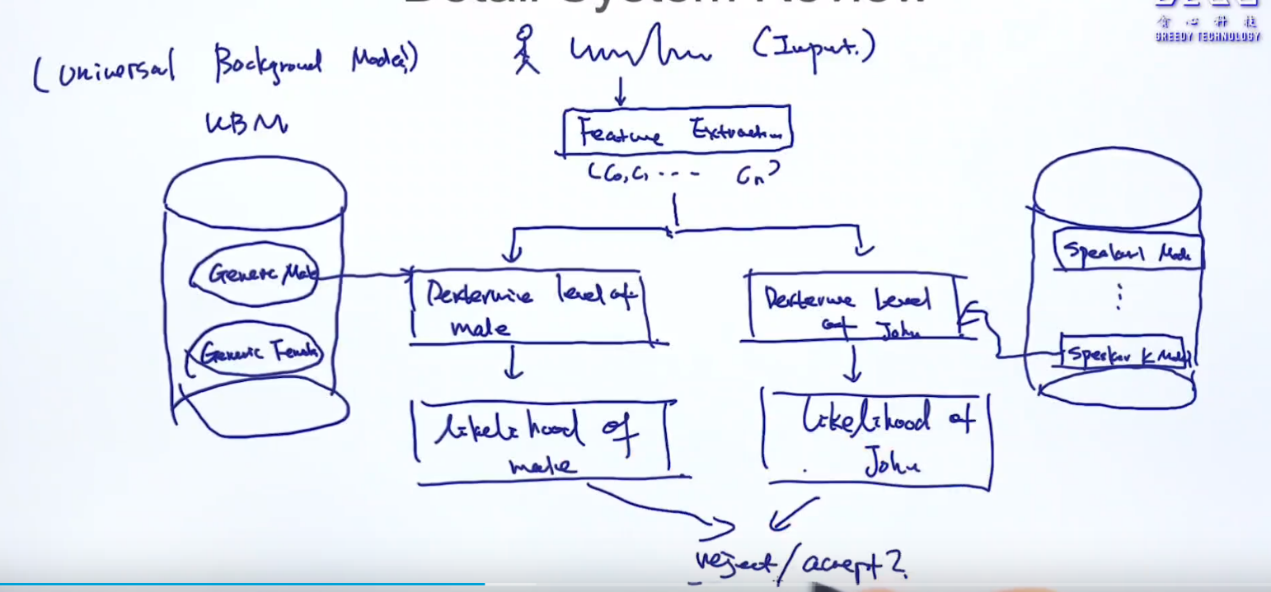 Detail System Review
贪心科技
GREEDY TECHNOLOGY
(Universal Background Model)
UBM
(Input.)
Feature Extraction
(C0, C1 ... Cn)
Generic Male
Generic Female
Determine level of
male
Determine Level
of John
Speaker1 Model
⋮
Speaker K Model
likelihood of
male
likelihood of
John
reject/accept?